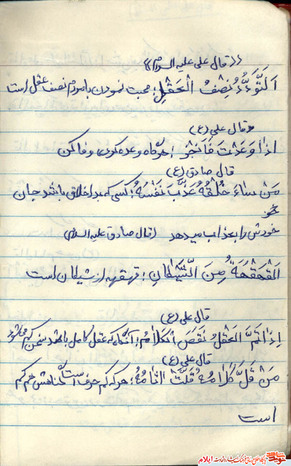 ((قال علی علیه السلام))
اَلتَّوَدُّدُ نِصْفُ الْعَقْلِ؛ محبت نمودن با مردم نصف عقل است
قال علی (ع)
اِذا وَعَدْتَ فَاَنْجِز؛ هرگاه وعده کردی وفا کن
قال صادق (ع)
مَن ساءَ خُلْقُهُ عَذَّبَ نَفْسَهُ؛ کسی که بد اخلاق باشد جان
خودش را بعذاب میدهد (قال صادق علیه السلام
القَهْقَهَةُ مِنَ الشَّیْطانِ؛ قهقهه از شیطان است
قال علی (ع)
اِذا تَمَّ الْعَقْلُ نَقَصَ الْکَلامُ؛ آنگاه که عقل کامل باشد سخن کم میشود
قال علی (ع)
مَن قَلَّ کَلامُهُ قَلَّتْ آثامُهُ؛ هرکه کم حرف است گناهش هم کم
است